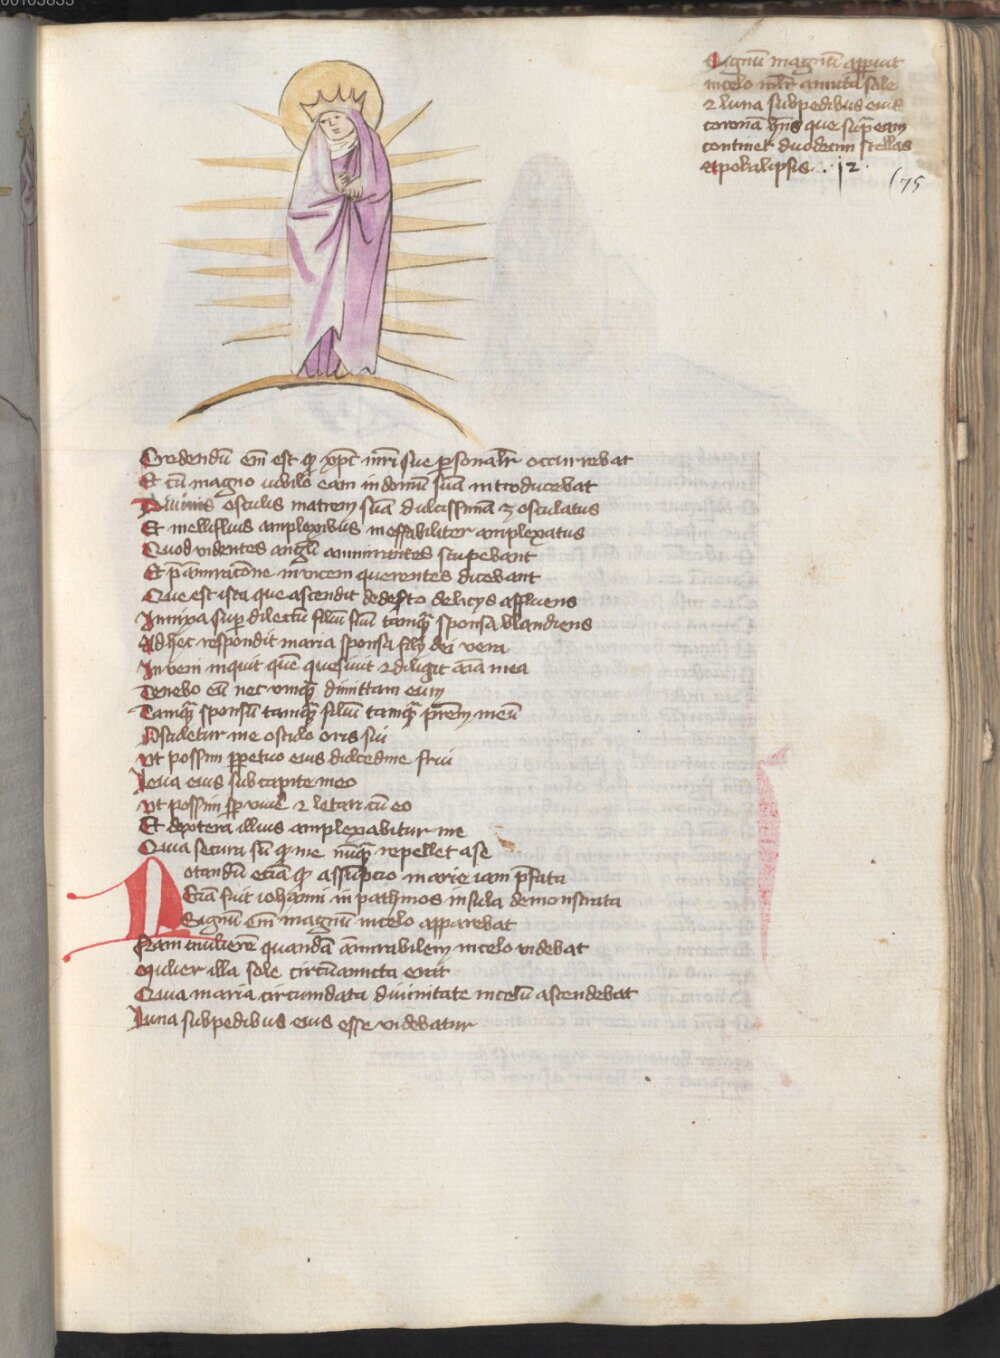 Signū magnū apparuit
in celo mlr̄ amicta sole
⁊ luna sub pedibus eius
coronā hn̄s que sup̄ eam
continet duodecim stellas
Apokalipsis . 12 .
75
Credendū em̄ est ꝙ xp̄c mr̄i sue ꝑsonalr̄ occurrebat
Et cū magno iubilo eam in domū suā introducebat
Diuinis osculis matrem suā dulcissimā ⁊ osculatus
Et mellifluis amplexibus ineffabiliter amplexatus
Quod videntes angl̄i ammirantes stupebant
Et p̄ āmiracōne inuicem querentes dicebant
Que est ista que ascendit de deserto delicijs affluens
Innixa suꝑ dilectū filiū suū tamq̄ sponsa blandiens
Ad hec respondit maria sponsa filij dei vera
Inveni inquit quē quesiuit ⁊ diligit aīa mea
Tenebo eū nec vmq̄ dimittam eum
Tamq̄ sponsū tamq̄ filiū tamq̄ pr̄em meū
Osculetur me osculo oris sui
vt possim ꝑpetuo eius dulcedine frui
Leua eius sub capite meo
vt possim sꝑ viuē ⁊ letari cū eo
Et dextera illius amplexabitur me
Quia secura sū ꝙ me nūq̄ repellet a se
Notandū eciā ꝙ assūpcio marie iam p̄fata
Eciā fuit iohānni in pathmos insula demonstrata
Signū em̄ magnū in celo apparebat
Nam mulierē quandā āmirabilem in celo videbat
Mulier illa sole circūamicta erat
Quia maria circumdata diuinitate in celū ascendebat
Luna sub pedibus eius esse videbatur